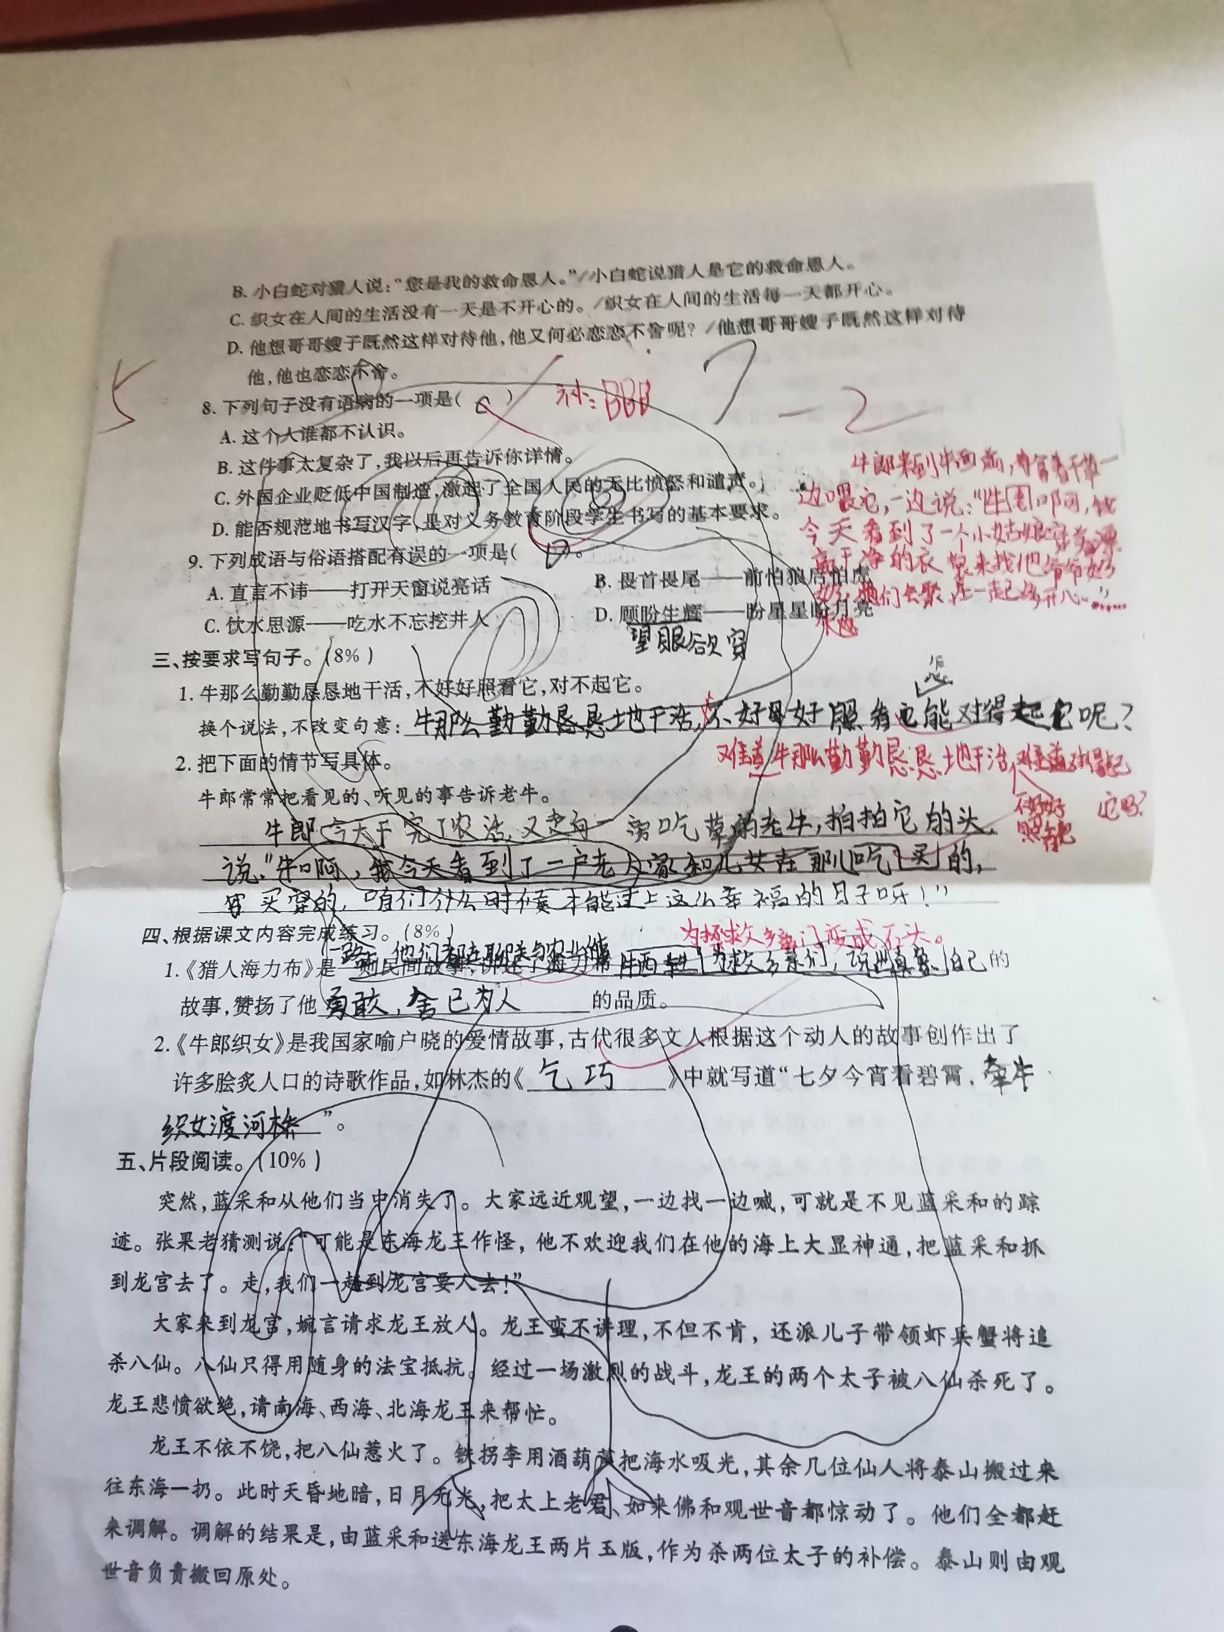 B. 小白蛇对猎人说：“您是我的救命恩人。”／小白蛇说猎人是它的救命恩人。
C. 织女在人间的生活没有一天是不开心的。／织女在人间的生活每一天都开心。
D. 他想哥哥嫂子既然这样对待他，他又何必恋恋不舍呢？／他想哥哥嫂子既然这样对待
他，他也恋恋不舍。
5
8. 下列句子没有语病的一项是( )
BBB
-2
A. 这个人谁都不认识。
B. 这件事太复杂了，我以后再告诉你详情。
C. 外国企业贬低中国制造，激起了全国人民的无比愤怒和谴责。
D. 能否规范地书写汉字，是对义务教育阶段学生书写的基本要求。
9. 下列成语与俗语搭配有误的一项是( D )。
A. 直言不讳——打开天窗说亮话
B. 畏首畏尾——前怕狼后怕虎
C. 饮水思源——吃水不忘挖井人
D. 顾盼生辉——盼星星盼月亮
望眼欲穿
边喂它，一边说：“牛
今天看到了一个小姑娘穿着漂
三、按要求写句子。(8%)
1. 牛那么勤勤恳恳地干活，不好好照看它，对不起它。
怎
换个说法，不改变句意：牛那么勤勤恳恳地干活，不好好照看它能对得起它呢？
难道牛那么勤勤恳恳地干活
不好好
照看它
它吗？
2. 把下面的情节写具体。
牛郎常常把看见的、听见的事告诉老牛。
牛郎今天干完了农活，又走向一旁吃草的老牛，拍拍它的头，
说：“牛啊，我今天看到了一户老人家和儿女在那儿吃买的，
穿买穿的，咱们什么时候才能过上这么幸福的日子呀！”
四、根据课文内容完成练习。(8%)
为拯救乡亲们变成石头。
1.《猎人海力布》是一则民间故事，讲述了海力布牺牲自己的
故事，赞扬了他勇敢，舍己为人的品质。
2.《牛郎织女》是我国家喻户晓的爱情故事，古代很多文人根据这个动人的故事创作出了
许多脍炙人口的诗歌作品，如林杰的《乞巧》中就写道“七夕今宵看碧霄，牵牛
织女渡河桥”。
五、片段阅读。(10%)
突然，蓝采和从他们当中消失了。大家远近观望，一边找一边喊，可就是不见蓝采和的踪
迹。张果老猜测说：“可能是东海龙王作怪，他不欢迎我们在他的海上大显神通，把蓝采和抓
到龙宫去了。走，我们一趟到龙宫要人去！”
大家来到龙宫，婉言请求龙王放人。龙王蛮不讲理，不但不肯，还派儿子带领虾兵蟹将追
杀八仙。八仙只得用随身的法宝抵抗。经过一场激烈的战斗，龙王的两个太子被八仙杀死了。
龙王悲愤欲绝，请南海、西海、北海龙王来帮忙。
龙王不依不饶，把八仙惹火了。铁拐李用酒葫芦把海水吸光，其余几位仙人将泰山搬过来
往东海一扔。此时天昏地暗，日月无光，把太上老君、如来佛和观世音都惊动了。他们全都赶
来调解。调解的结果是，由蓝采和送东海龙王两片玉版，作为杀两位太子的补偿。泰山则由观
世音负责搬回原处。